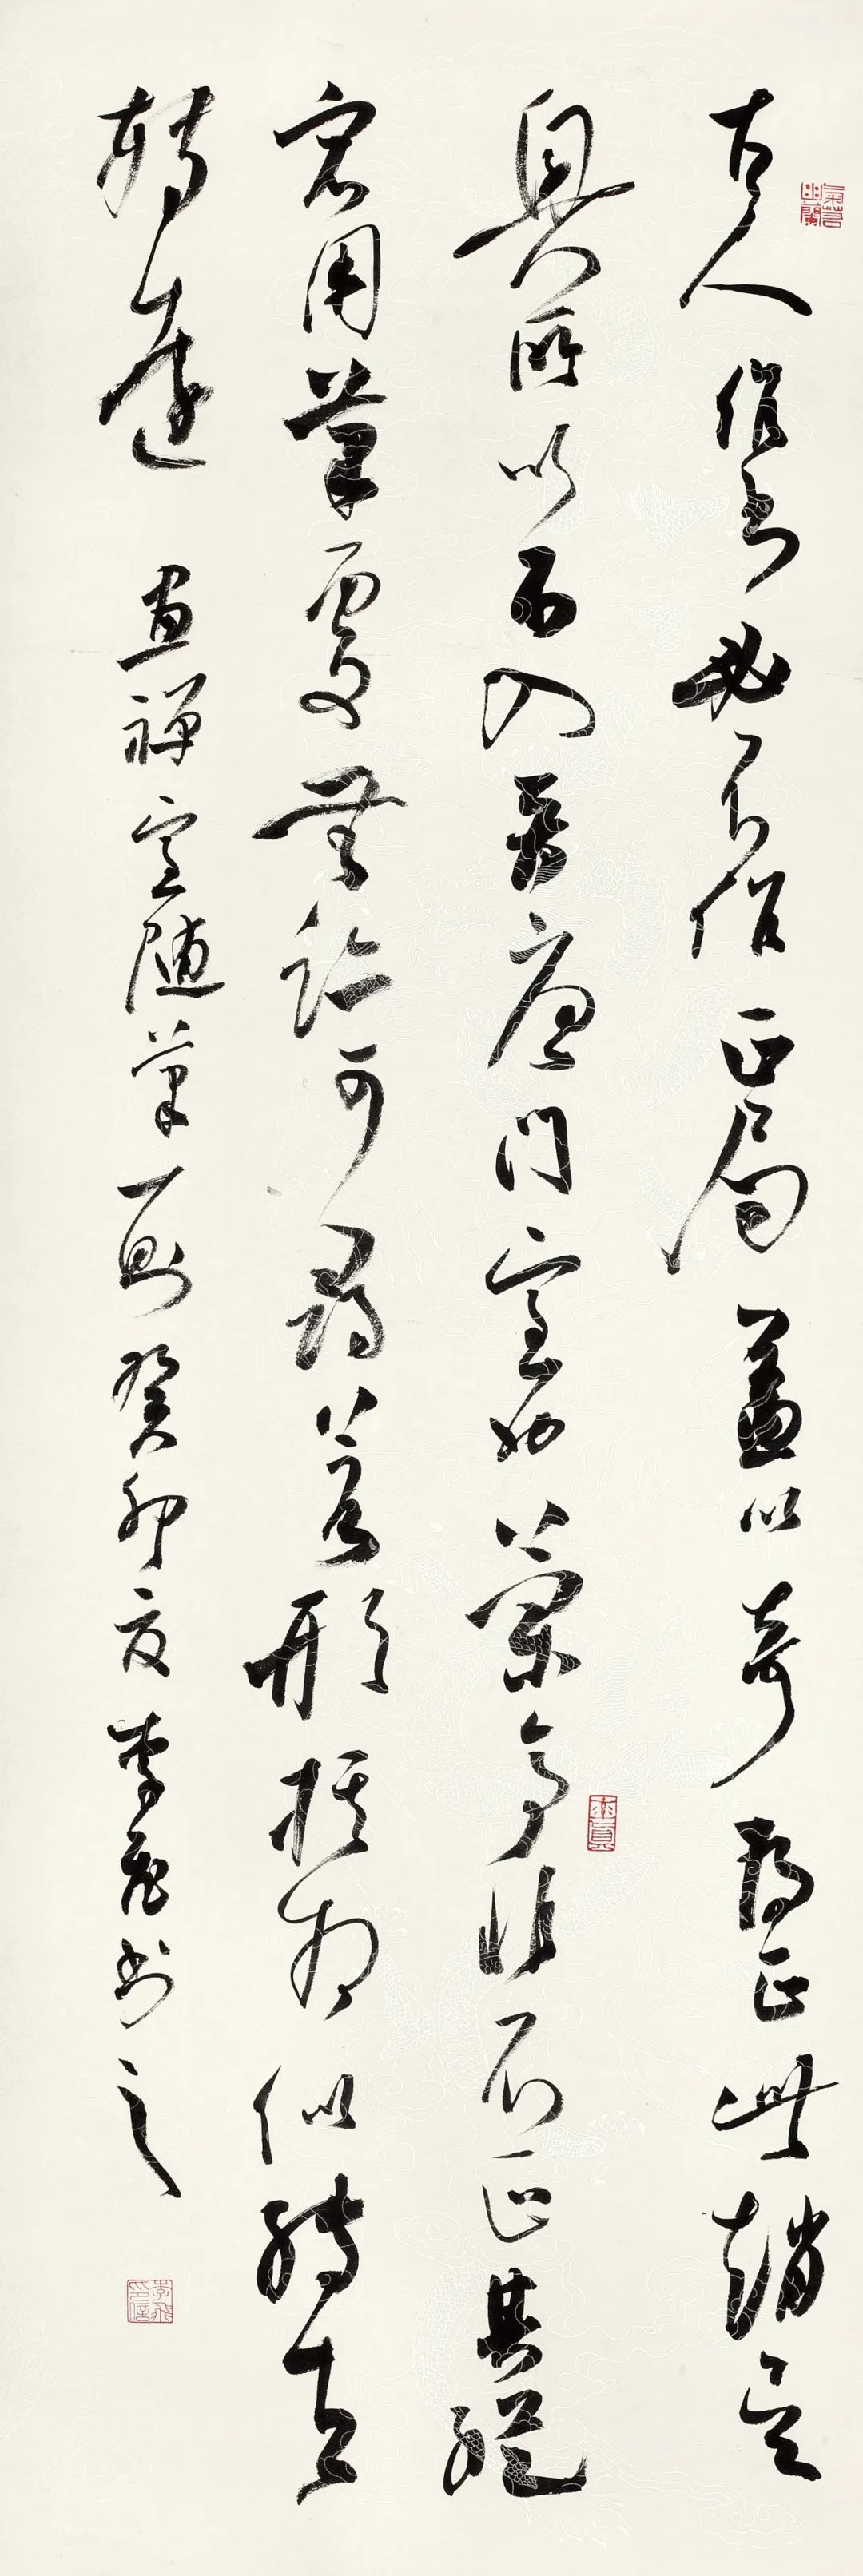 古人作書必不作正局蓋以奇為正此趙吳
興所以不入晉唐門室也蘭亭非不正其縱
宕用筆處無跡可尋若形模相似轉去
轉遠 畫禪室隨筆一則癸卯夏李飛書之
氣若幽蘭
李飛印信